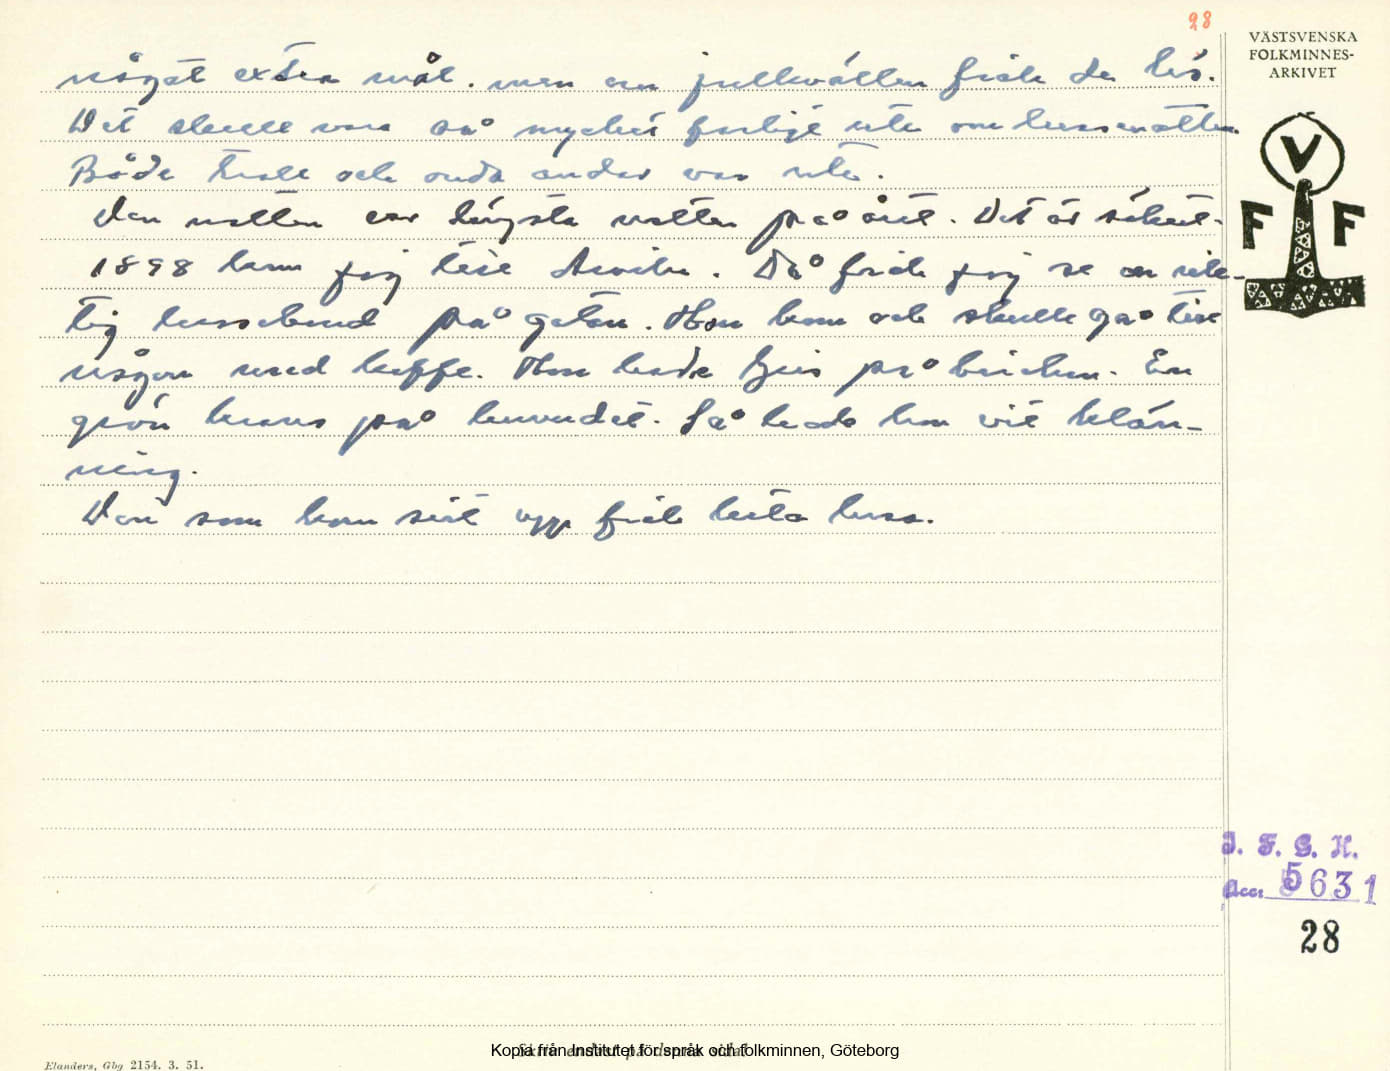 28
VÄSTSVENSKA
FOLKMINNES-
ARKIVET
något extra mål. men om jullkvällen fick de
Det skulle vara så mycket farligt ute om lussenatten
Både troll och onda andar var ute.
den natten var längsta natten på året. Det är säkert.
1898 kom jag till Arvika. Då fick jag se en rik-
tig lussebrud på gatan. Hon kom och skulle gå till
någon med kaffe. Hon hade ljus på brickan. En
grön krans på huvudet. Så hade hon vit klän-
ning.
Den som kom sist upp fick heta luss.
V
F F
I. F. G. H.
Acc: 5631
28
Kopia från Institutet för språk och folkminnen, Göteborg
Elanders, Gbg 2154. 3. 51.